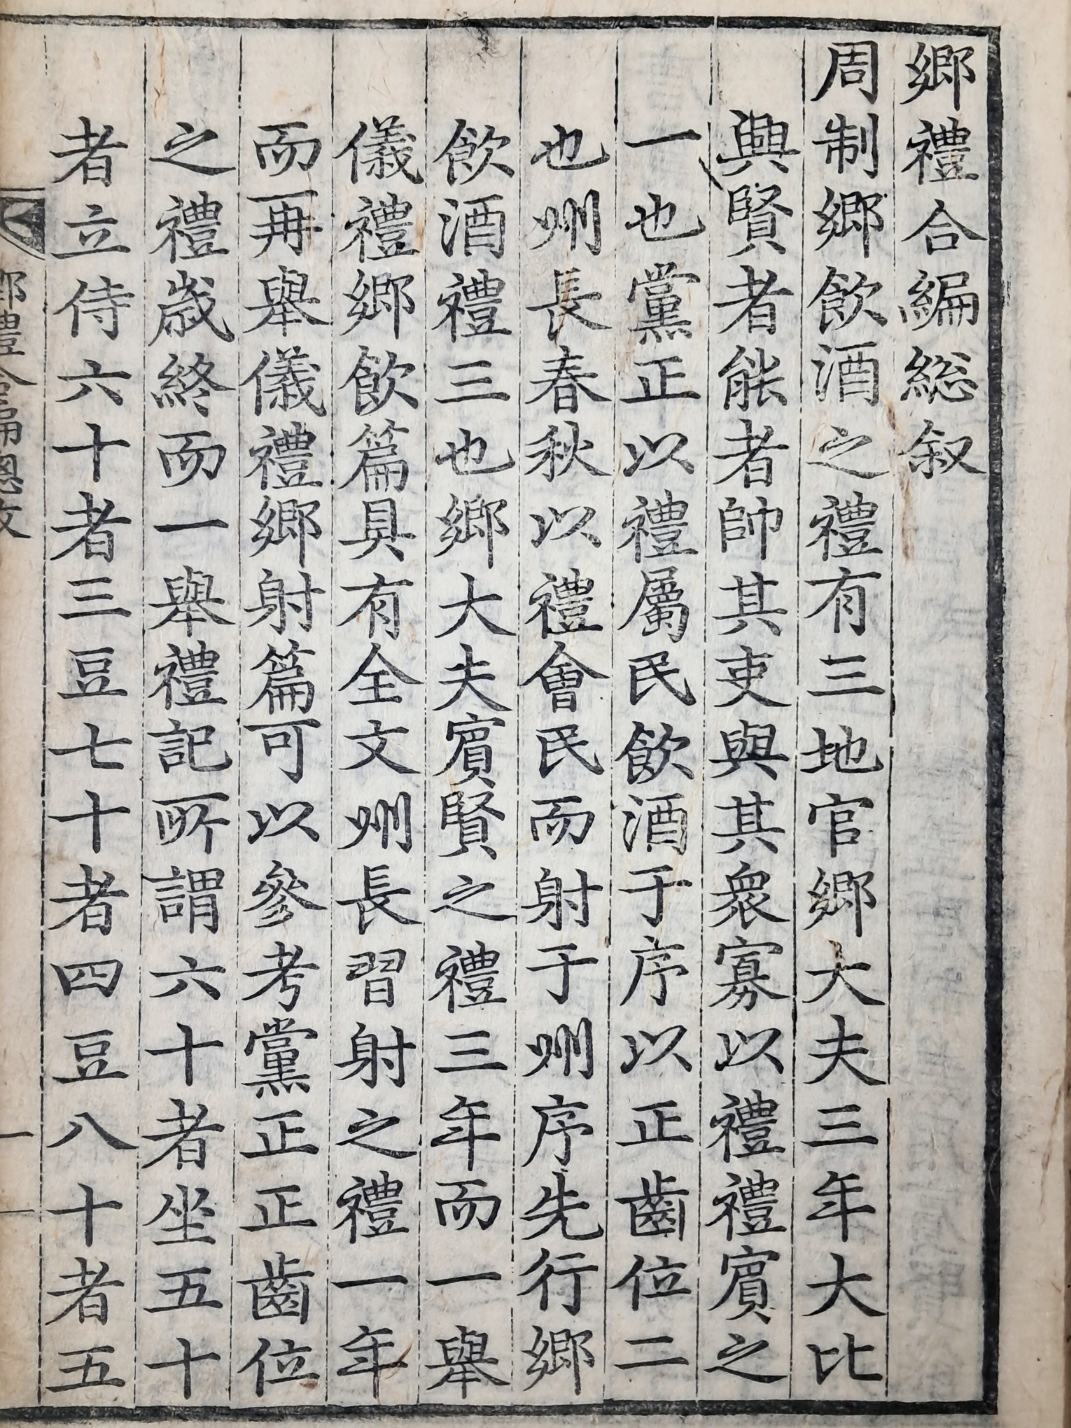 鄉禮合編総叙
周制鄉飮酒之禮有三地官鄉大夫三年大比
興賢者能者帥其吏與其衆寡以禮禮賓之
一也黨正以禮屬民飮酒于序以正齒位二
也州長春秋以禮會民而射于州序先行鄉
飮酒禮三也鄉大夫賓賢之禮三年而一擧
儀禮鄉飮篇具有全文州長習射之禮一年
而再擧儀禮鄉射篇可以參考黨正正齒位
之禮歲終而一擧禮記所謂六十者坐五十
者立侍六十者三豆七十者四豆八十者五